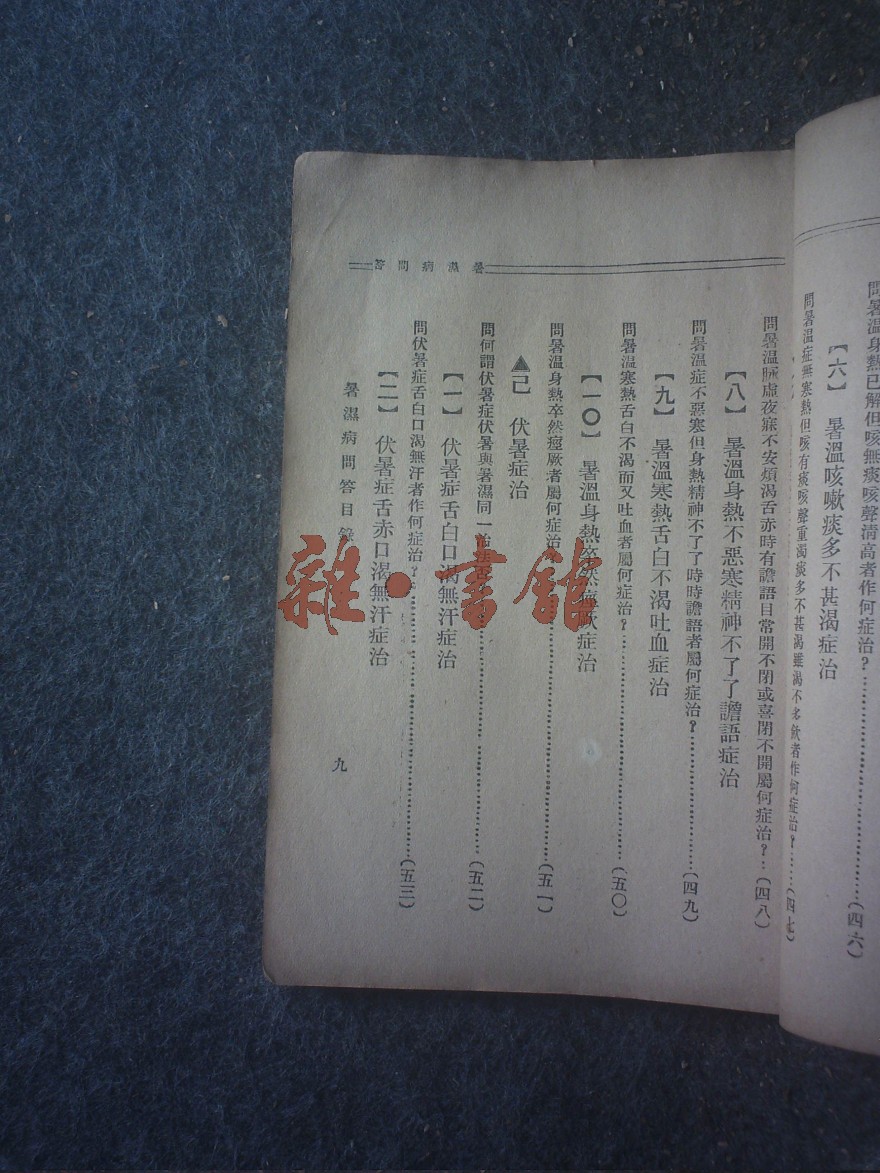 暑濕病問答
問暑溫身熱已解但咳無痰咳聲清高者作何症治？……(四六)
【六】　暑溫咳嗽痰多不甚渴症治
問暑溫症無寒熱但咳有痰咳聲重濁痰多不甚渴雖渴不多飲者作何症治？……(四七)
問暑溫脈虛夜寐不安煩渴舌赤時有譫語目常開不閉或喜閉不開屬何症治？…(四八)
【八】　暑溫身熱不惡寒精神不了了譫語症治
問暑溫症不惡寒但身熱精神不了了時時譫語者屬何症治？……(四九)
【九】　暑溫寒熱舌白不渴吐血症治
問暑溫寒熱舌白不渴而又吐血者屬何症治？……(五〇)
【一〇】　暑溫身熱卒然痙厥症治
問暑溫身熱卒然痙厥者屬何症治？……(五一)
▲己　伏暑症治
問何謂伏暑症伏暑與暑濕同一治法否？……(五二)
【一】　伏暑症舌白口渴無汗症治
問伏暑症舌白口渴無汗者作何症治？……(五三)
【二】　伏暑症舌赤口渴無汗症治
暑濕病問答目錄
九
雜·書館